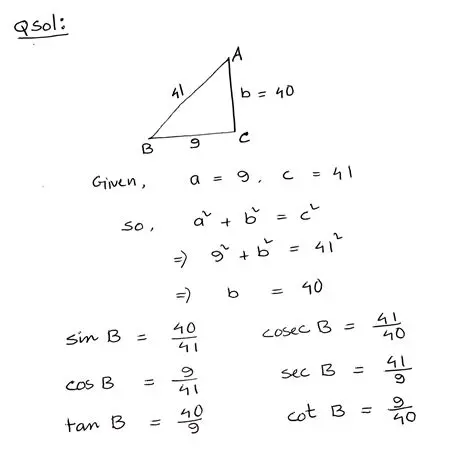 Qsol:
A
41
b = 40
B
9
C
Given, a = 9, c = 41
so, a² + b² = c²
=) 9² + b² = 41²
=) b = 40
sin B = 40/41 cosec B = 41/40
cos B = 9/41 sec B = 41/9
tan B = 40/9 cot B = 9/40